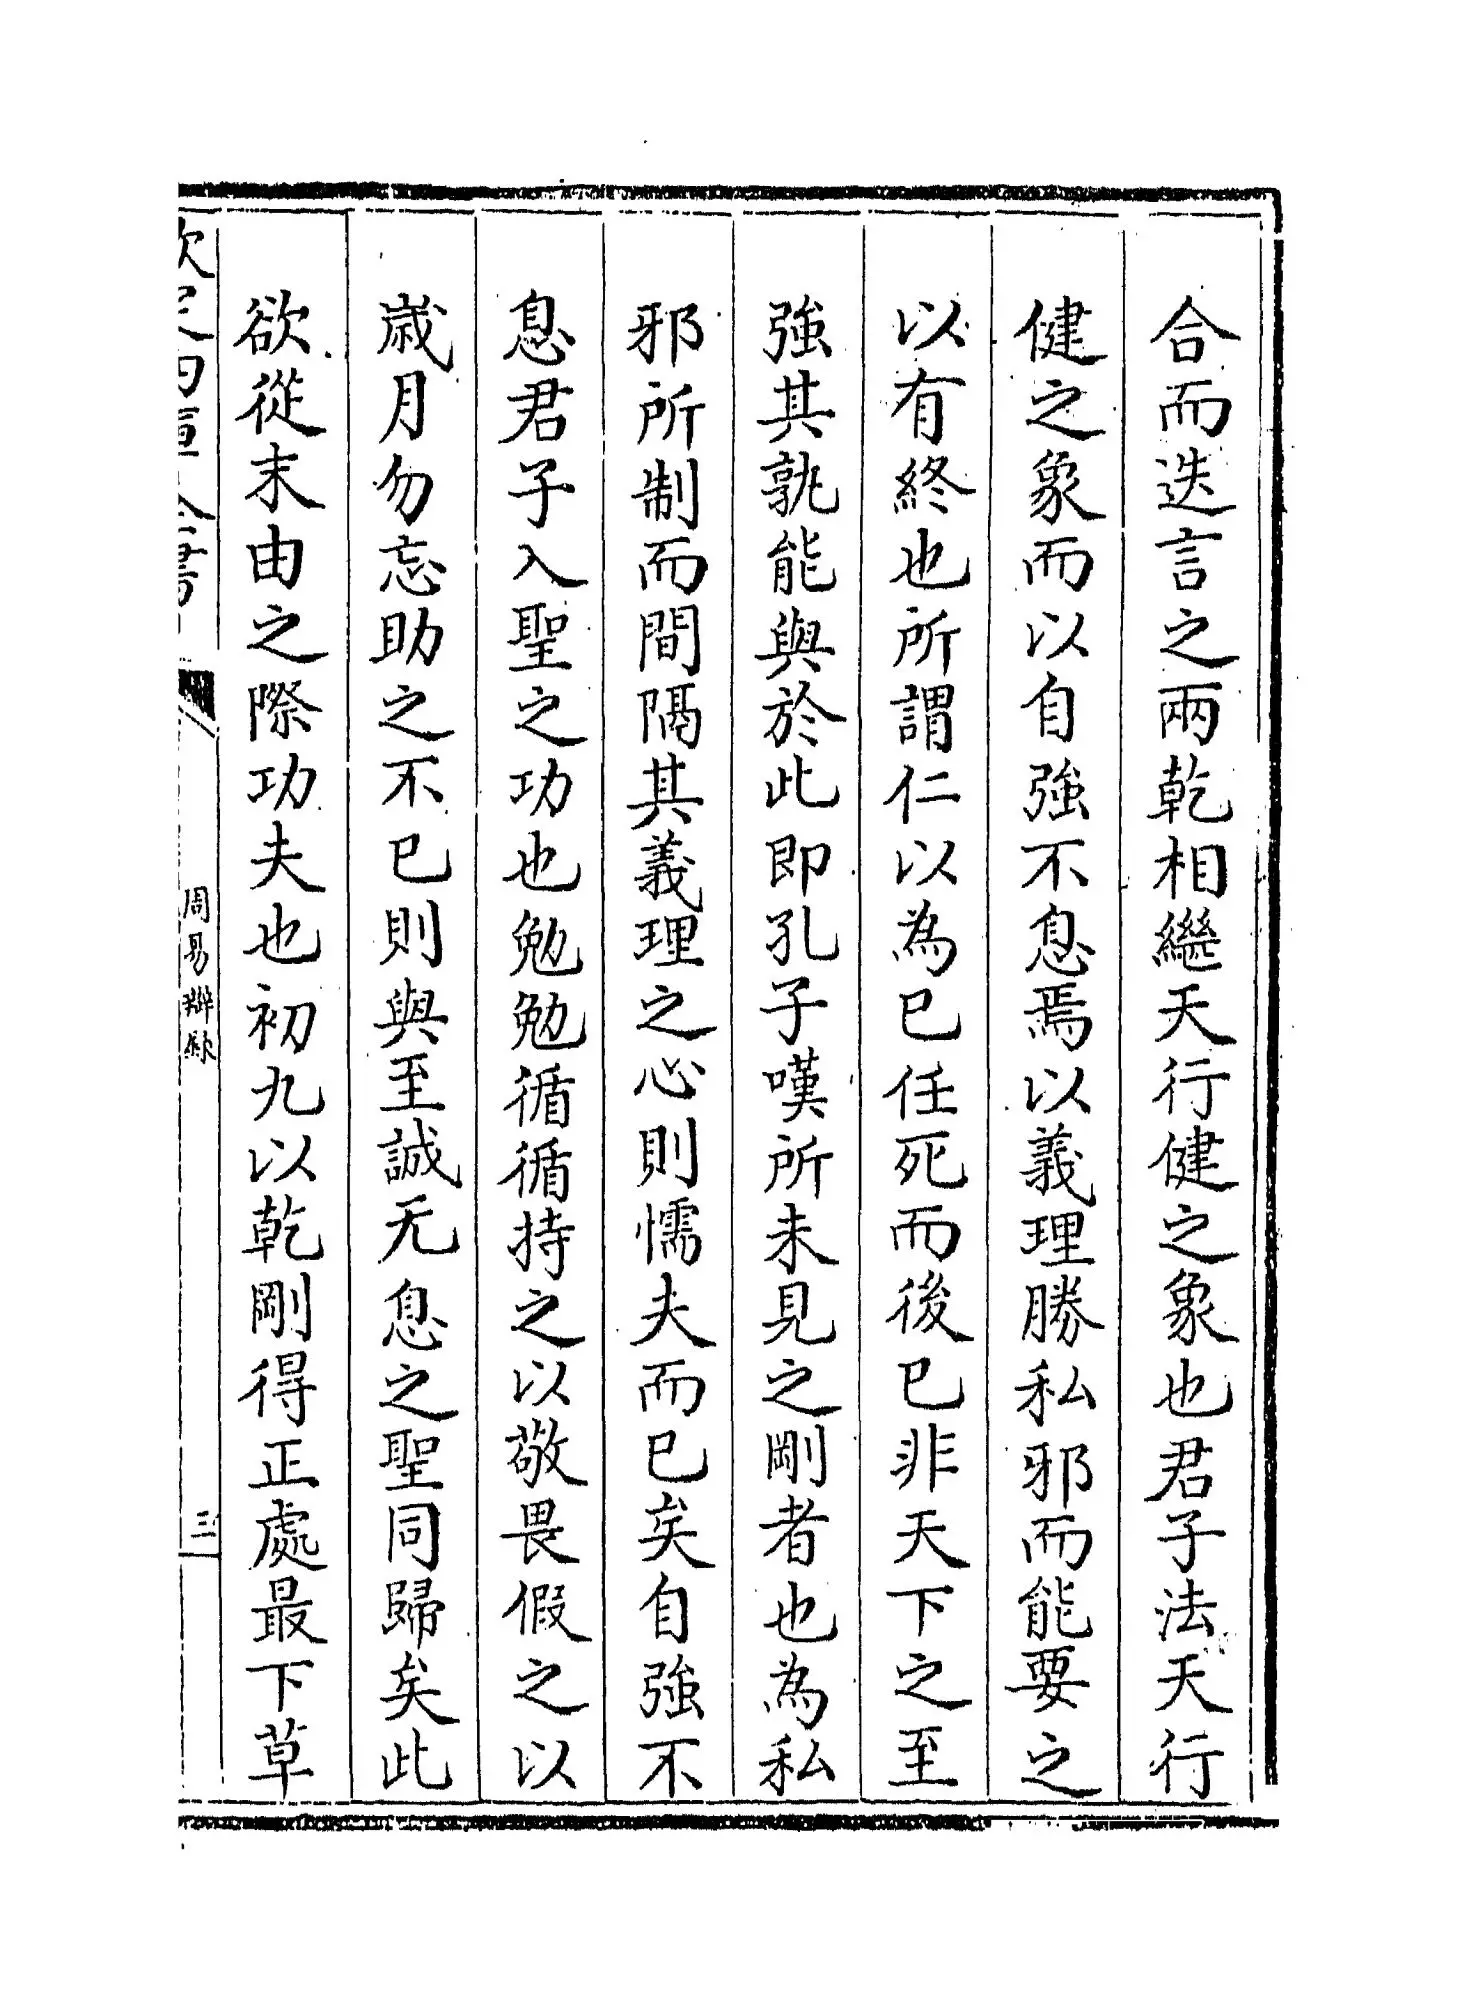 合而迭言之兩乾相繼天行健之象也君子法天行
健之象而以自強不息焉以義理勝私邪而能要之
以有終也所謂仁以為已任死而後已非天下之至
強其孰能與於此即孔子嘆所未見之剛者也為私
邪所制而間隔其義理之心則懦夫而已矣自強不
息君子入聖之功也勉勉循循持之以敬畏假之以
歲月勿忘助之不已則與至誠无息之聖同歸矣此
欲從末由之際功夫也初九以乾剛得正處最下草
欽定四庫全書
周易辯錄
三